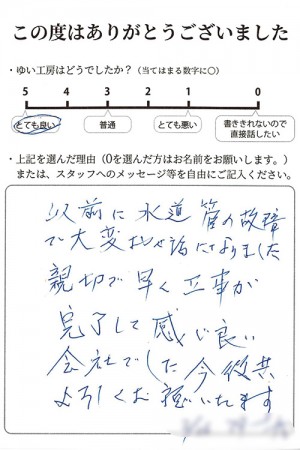 この度はありがとうございました
・ゆい工房はどうでしたか？（当てはまる数字に○）
5 4 3 2 1 0
とても良い 普通 とても悪い 書ききれないので直接話したい
・上記を選んだ理由（0を選んだ方はお名前をお願いします。）
または、スタッフへのメッセージ等を自由にご記入ください。
以前に水道管の故障
で大変お世話になりました
親切で早く工事が
完了して感じ良い
会社でした今後共
よろしくお願いいたします